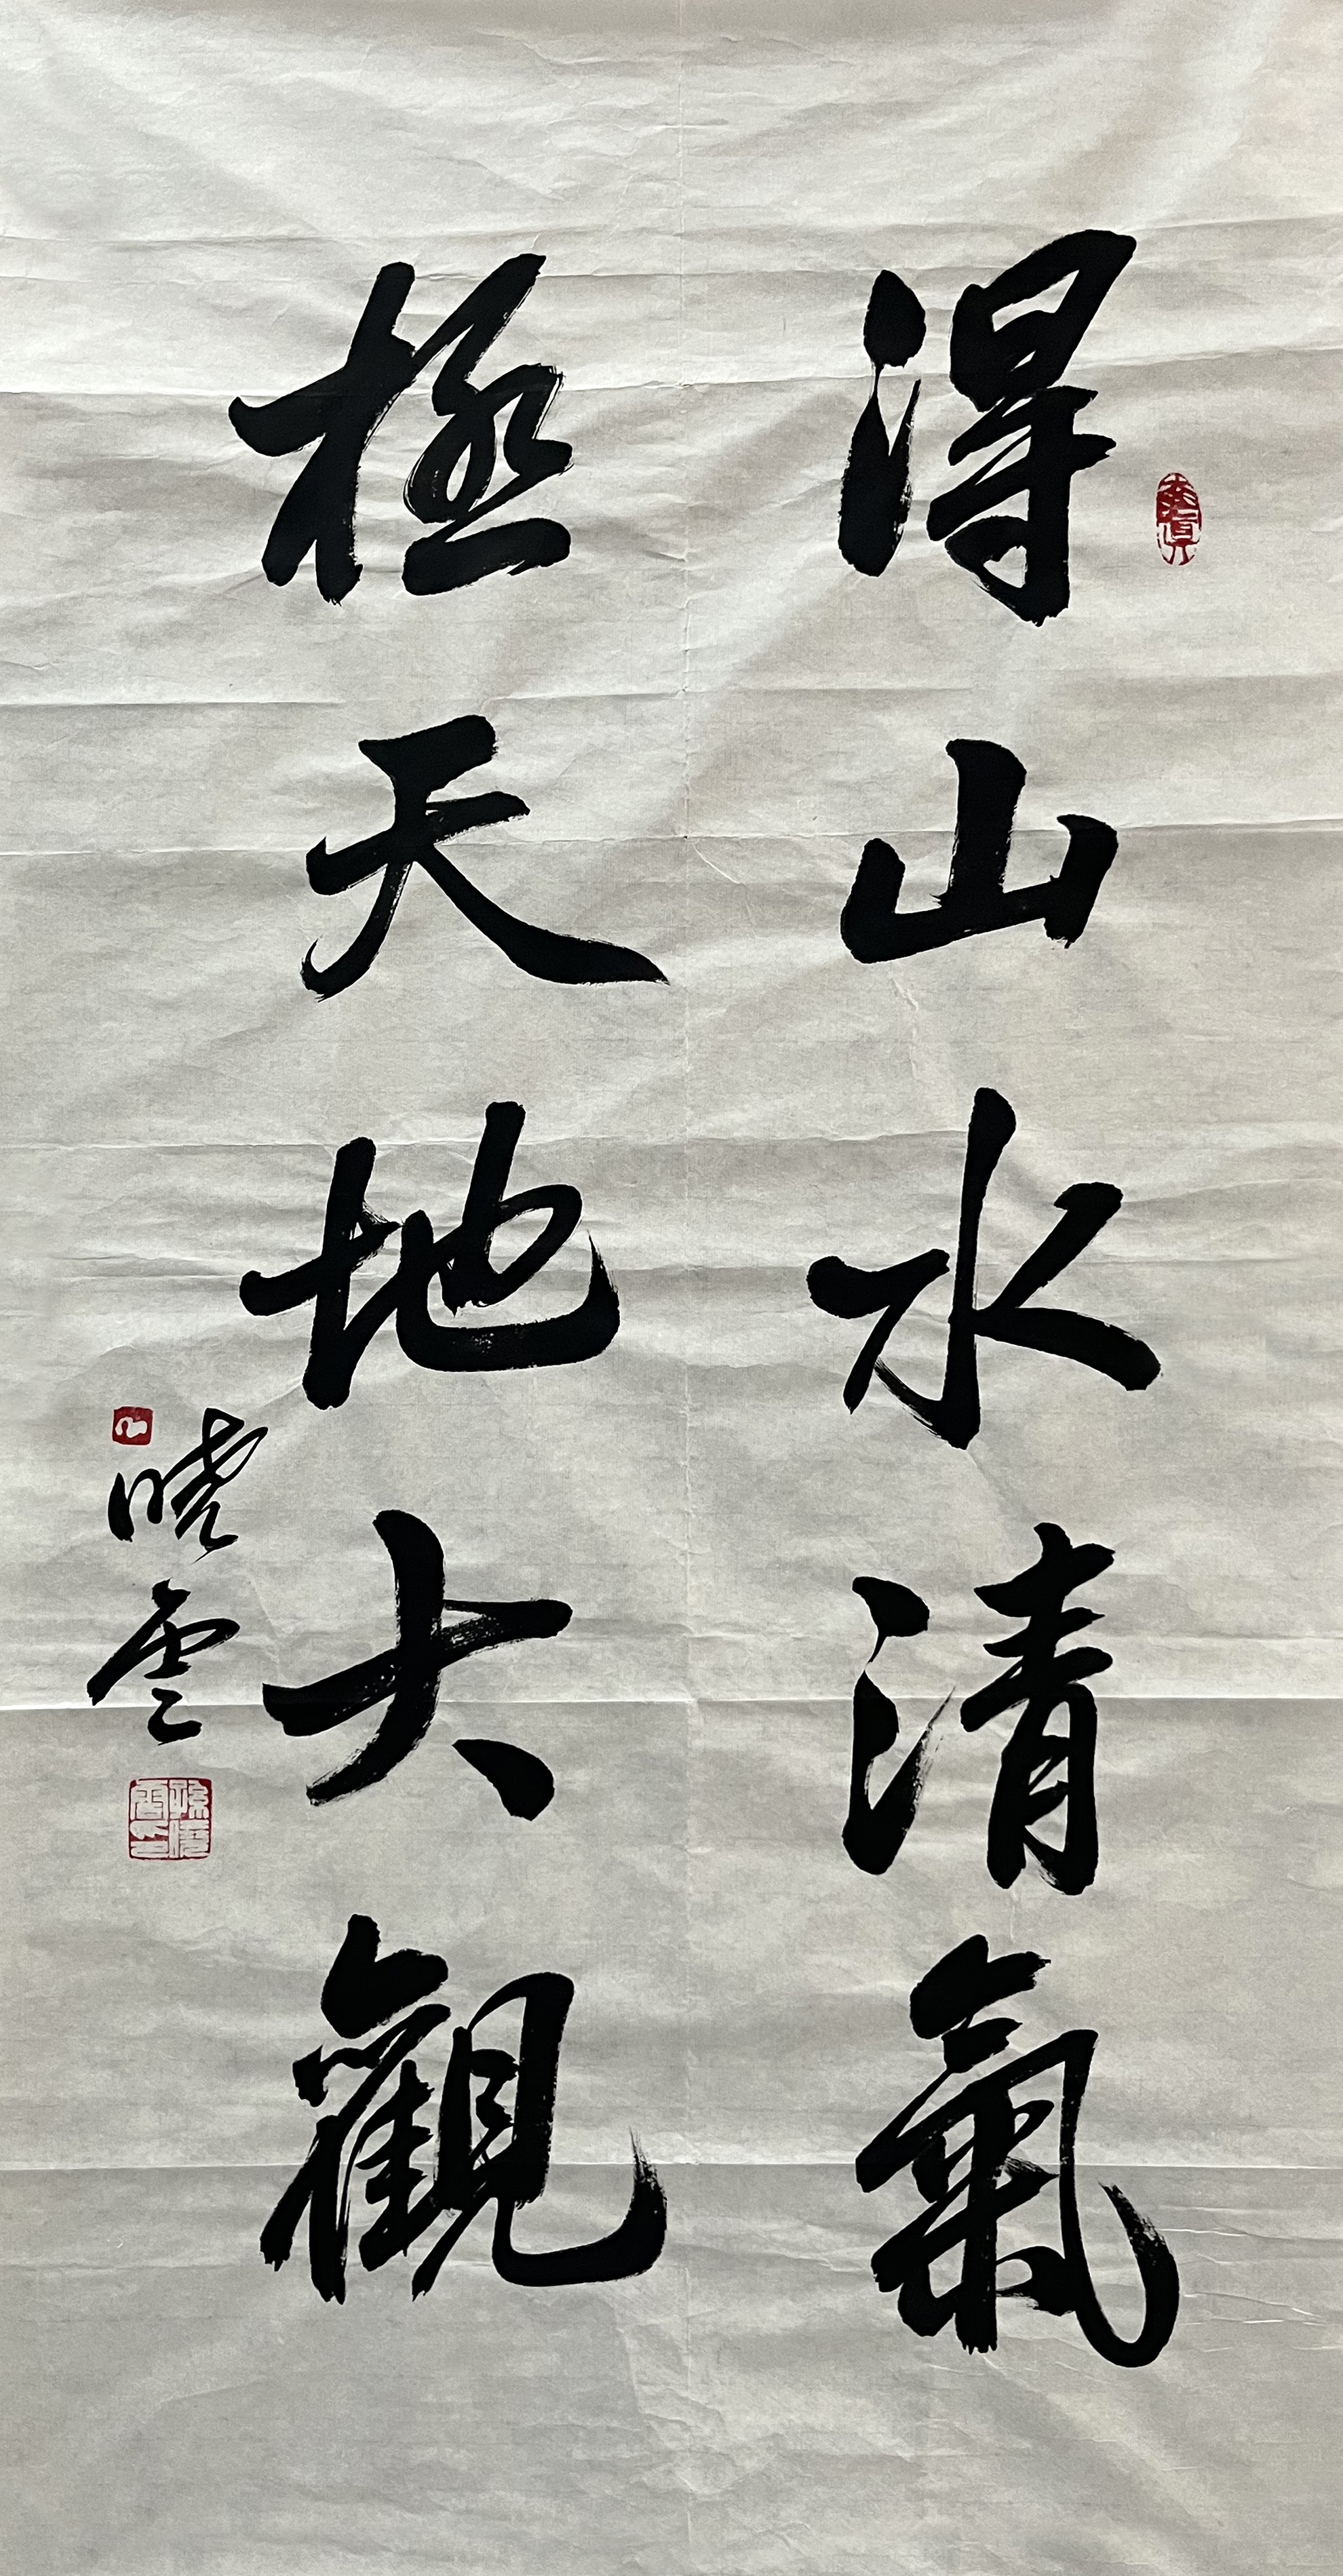 得山水清氣
極天地大觀
曉雲